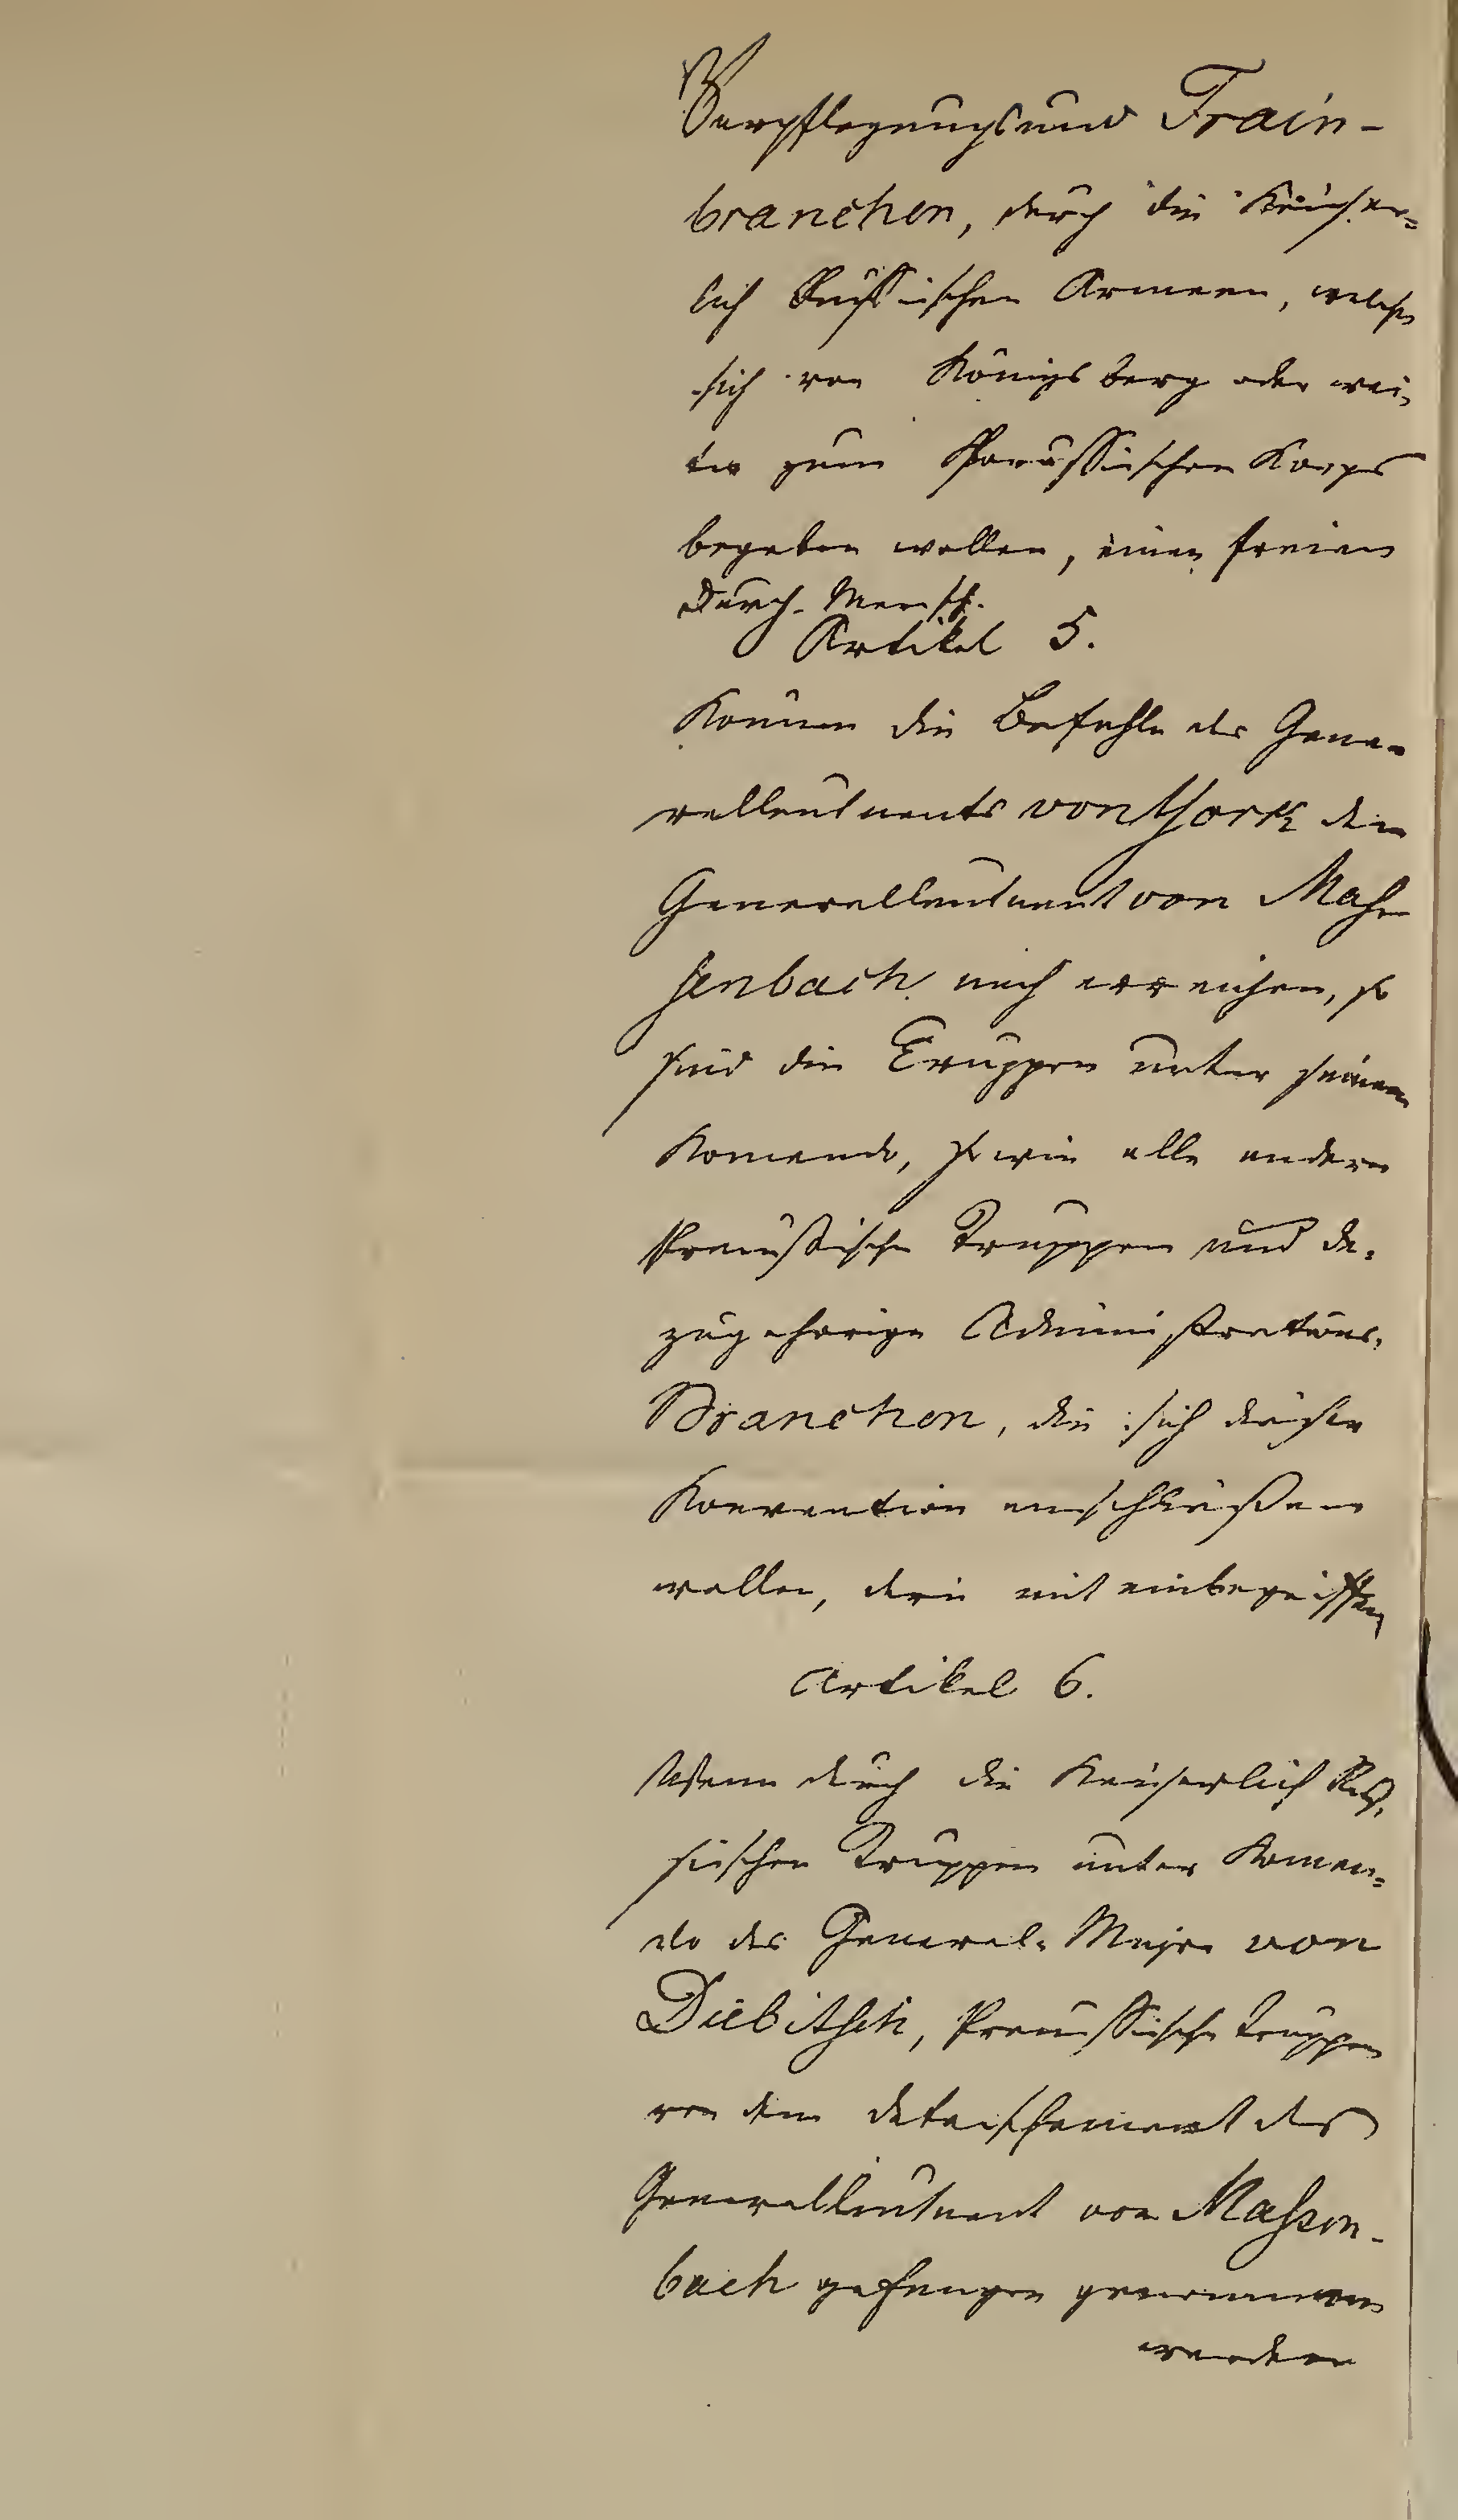 Verpflegungs und Train-
branchen, durch die Kaiser=
lich Russischen Armeen, welche
sich von Königsberg oder wei-
ter zum Preussischen Korps
begeben wollen, einen freien
Durch-Marsch.
Artikel 5.
Können die Befehle des Gene-
ralleutnants von York den
Generalleutnant von Mas-
senbach noch erreichen, so
sind die Truppen unter seinem
Komando, so wie alle andere
Preußische Truppen und da-
zugehörige Administrations-
Branchen, die sich dieser
Konvention anschließen
wollen, darin mit einbegriffen
Artikel 6.
Wenn durch die Kaiserlich Rus-
sischen Truppen unter Koman=
do des General-Major von
Diebitsch, Preussische Truppen
von dem Detaschement des
Generalleutnant von Massen-
bach gefangen genommen
werden